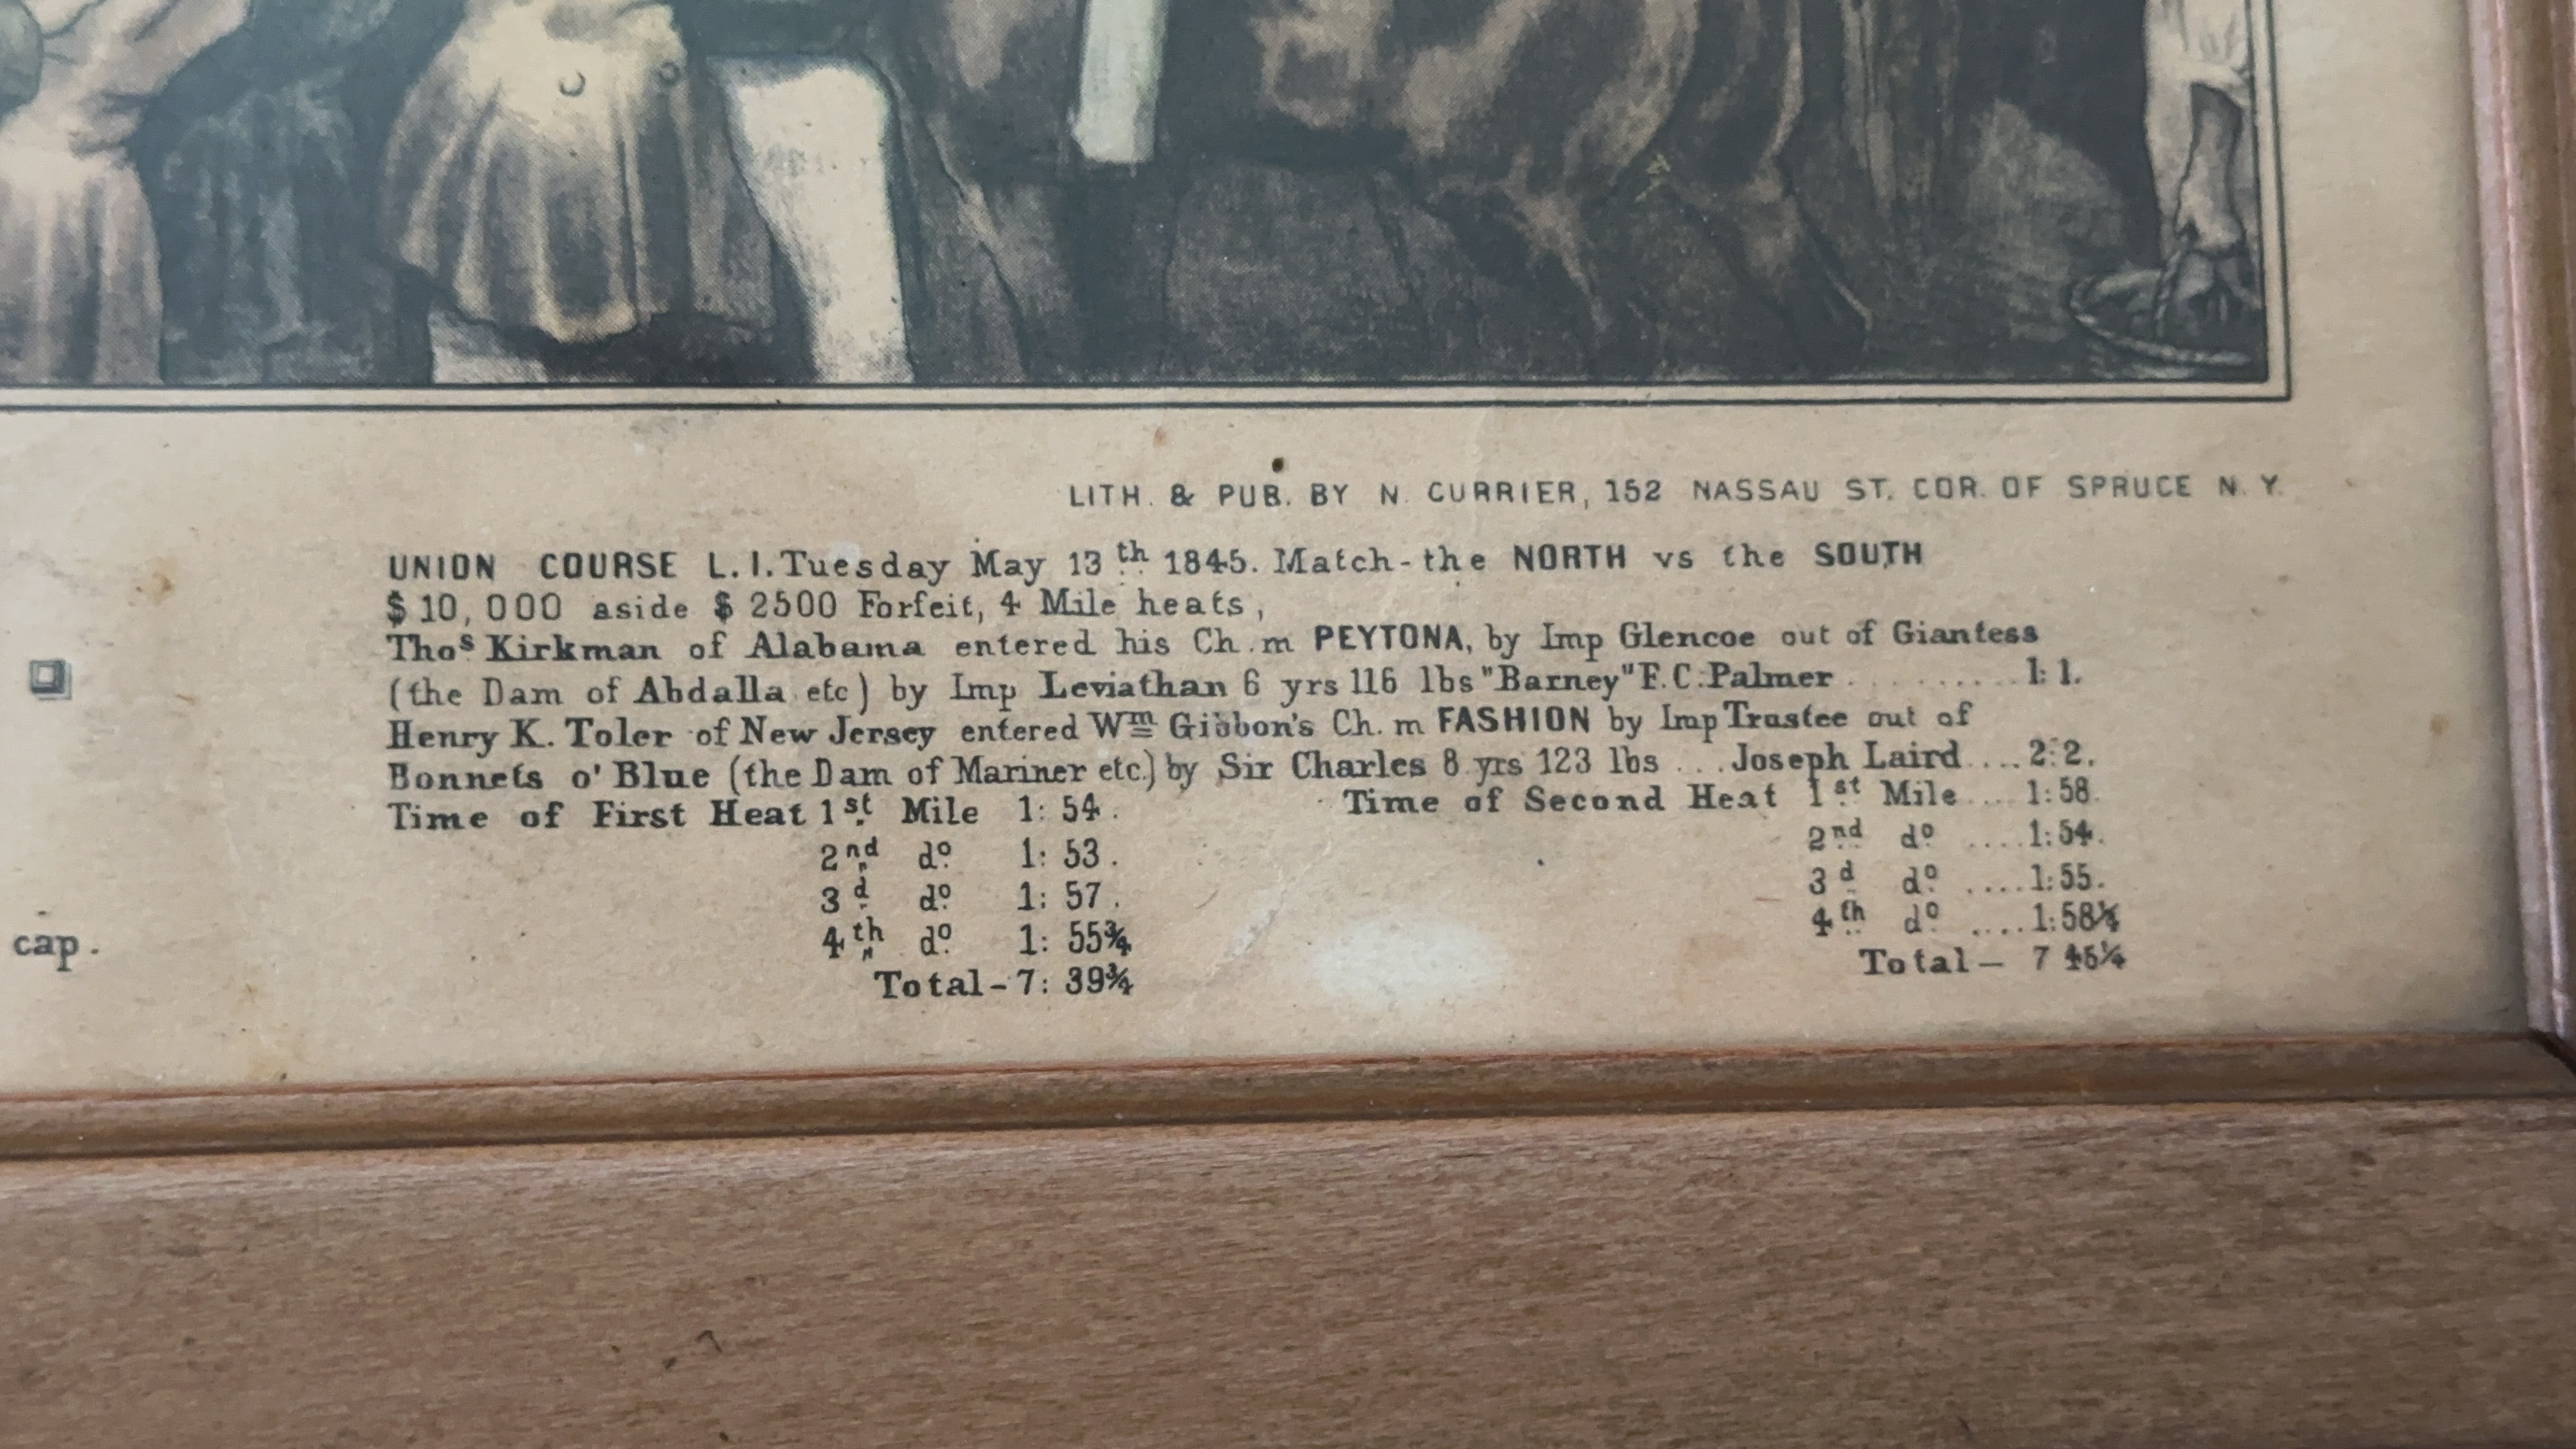 LITH. & PUB. BY N. CURRIER, 152 NASSAU ST. COR. OF SPRUCE N. Y.
UNION COURSE L. I. Tuesday May 13th 1845. Match - the NORTH vs the SOUTH
$ 10,000 aside $ 2500 Forfeit, 4 Mile heats,
Thos Kirkman of Alabama entered his Ch. m PEYTONA, by Imp Glencoe out of Giantess
(the Dam of Abdalla etc) by Imp Leviathan 6 yrs 116 lbs "Barney" F. C. Palmer ......... 1: 1.
Henry K. Toler of New Jersey entered Wm Gibbon's Ch. m FASHION by Imp Trustee out of
Bonnets o' Blue (the Dam of Mariner etc.) by Sir Charles 8 yrs 123 lbs ... Joseph Laird .... 2: 2.
Time of First Heat 1st Mile 1: 54. Time of Second Heat 1st Mile .... 1: 58.
2nd do. 1: 53. 2nd do .... 1: 54.
3d do. 1: 57. 3d do .... 1: 55.
4th do. 1: 55¾ 4th do .... 1: 58¼
cap.
Total - 7: 39¾ Total - 7 45¼